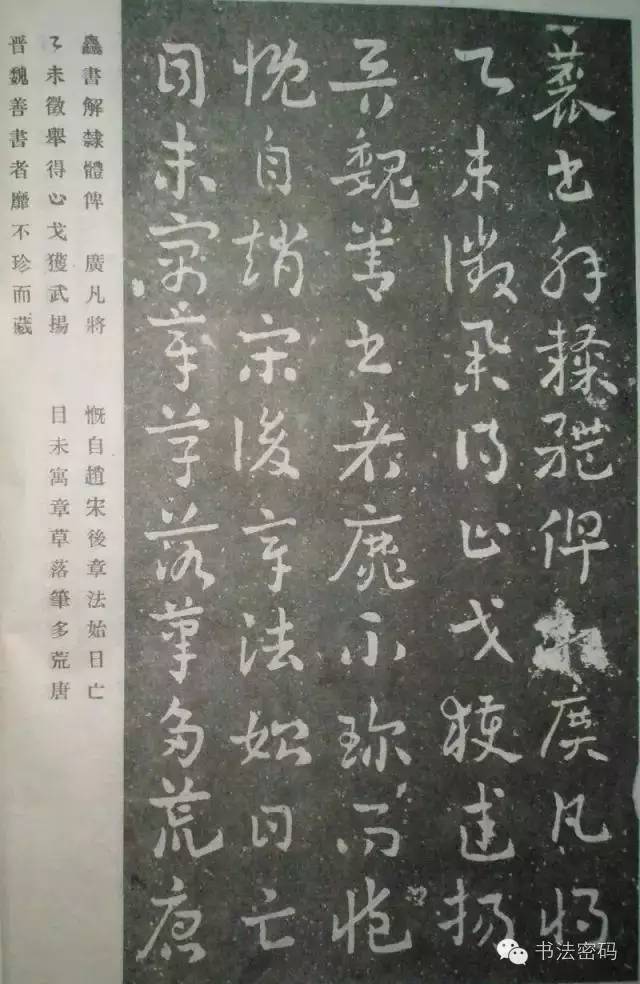 蠡書解隸體俾 廣凡將
乙未徵舉得止戈獲武揚
晉魏善書者靡不珍而藏
慨自趙宋後章法始日亡
目未寓章草落筆多荒唐
蠡書解隸體俾 廣凡將
乙未徵舉得止戈獲武揚
晉魏善書者靡不珍而藏
慨自趙宋後章法始日亡
目未寓章草落筆多荒唐
书法密码